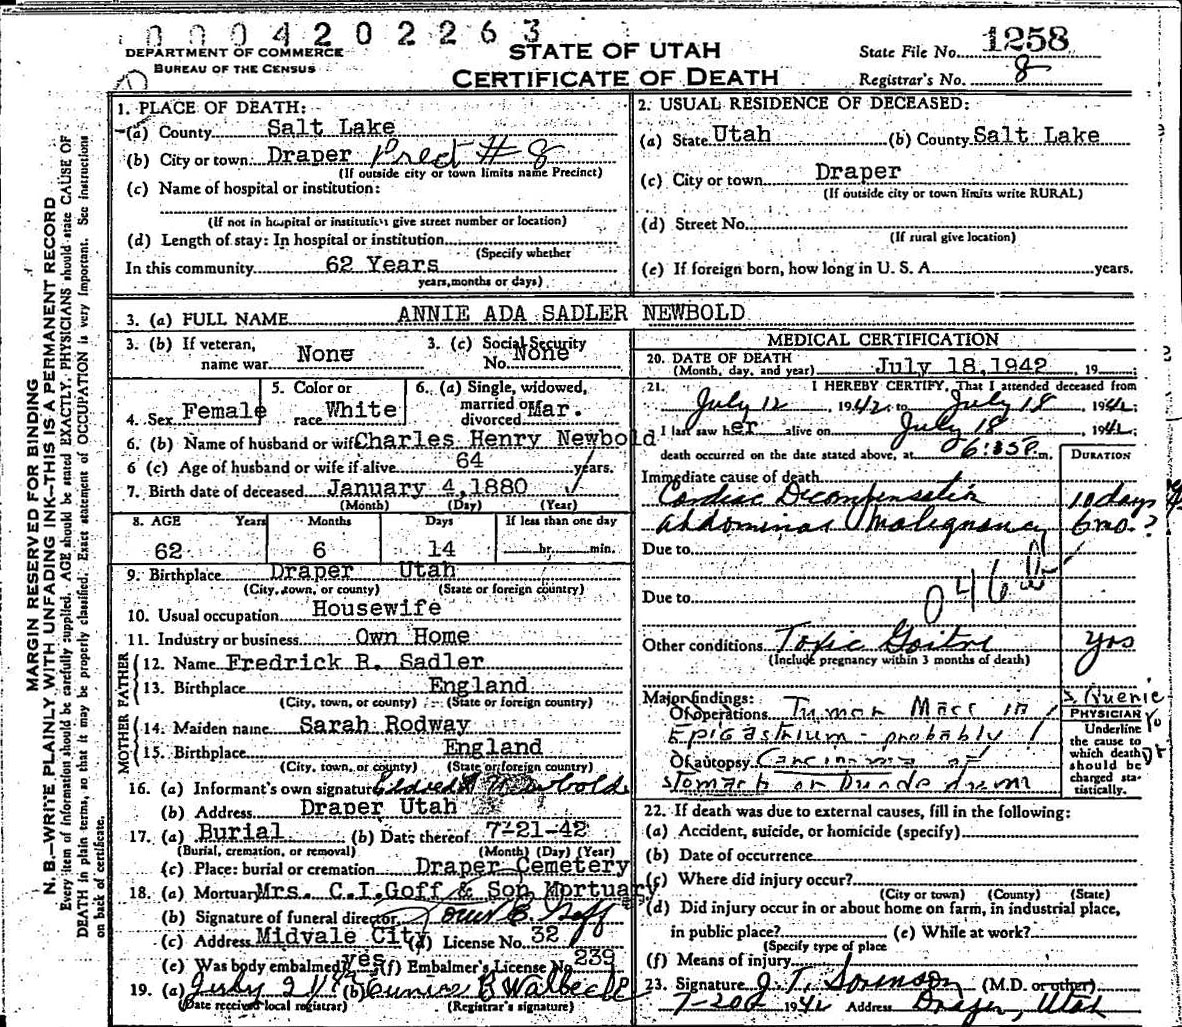 0004202263
DEPARTMENT OF COMMERCE
BUREAU OF THE CENSUS
STATE OF UTAH
CERTIFICATE OF DEATH
State File No. 1258
Registrar's No. 8
MARGIN RESERVED FOR BINDING
N. B.—WRITE PLAINLY WITH UNFADING INK—THIS IS A PERMANENT RECORD
Every item of information should be carefully supplied. AGE should be stated EXACTLY. PHYSICIANS should state CAUSE OF
DEATH in plain terms, so that it may be properly classified. Exact statement of OCCUPATION is very important. See instructions
on back of certificate.
1. PLACE OF DEATH:
(a) County Salt Lake
(b) City or town Draper Prect # 8
(If outside city or town limits name Precinct)
(c) Name of hospital or institution:
(If not in hospital or institution give street number or location)
(d) Length of stay: In hospital or institution
(Specify whether
In this community 62 Years
years, months or days)
2. USUAL RESIDENCE OF DECEASED:
(a) State Utah (b) County Salt Lake
(c) City or town Draper
(If outside city or town limits write RURAL)
(d) Street No.
(If rural give location)
(e) If foreign born, how long in U. S. A. years.
3. (a) FULL NAME ANNIE ADA SADLER NEWBOLD
3. (b) If veteran, name war None
3. (c) Social Security No. None
4. Sex Female
5. Color or race White
6. (a) Single, widowed, married or divorced Mar.
6. (b) Name of husband or wife Charles Henry Newbold
6 (c) Age of husband or wife if alive 64 years.
7. Birth date of deceased January 4, 1880
(Month) (Day) (Year)
8. AGE Years Months Days If less than one day
62 6 14 hr. min.
9. Birthplace Draper Utah
(City, town, or county) (State or foreign country)
10. Usual occupation Housewife
11. Industry or business Own Home
FATHER
12. Name Fredrick R. Sadler
13. Birthplace England
(City, town, or county) (State or foreign country)
MOTHER
14. Maiden name Sarah Rodway
15. Birthplace England
(City, town, or county) (State or foreign country)
16. (a) Informant's own signature Newbold
(b) Address Draper Utah
17. (a) Burial (b) Date thereof 7-21-42
(Burial, cremation, or removal) (Month) (Day) (Year)
(c) Place: burial or cremation Draper Cemetery
18. (a) Mortuary Mrs. C.I. Goff & Son Mortuary
(b) Signature of funeral director Goff
(c) Address Midvale City (d) License No. 32
(e) Was body embalmed yes (f) Embalmer's License No. 239
19. (a) July 21 (b) Eunice B
(Date received local registrar) (Registrar's signature)
MEDICAL CERTIFICATION
20. DATE OF DEATH July 18, 1942, 19
(Month, day, and year)
21. I HEREBY CERTIFY, That I attended deceased from
July 12, 1942 to July 18, 1942
I last saw her alive on July 18, 1942;
death occurred on the date stated above, at 6:35 P. m.
DURATION
Immediate cause of death
Cardiac Decompensation 10 days
Abdominal Malignancy 6 mo. ?
Due to
046
Due to
Other conditions Toxic Goitre yrs
(Include pregnancy within 3 months of death)
Major findings:
Of operations Tumor Mass in
Epigastrium - probably
Of autopsy Carcinoma of
stomach or Duodenum
PHYSICIAN
Underline
the cause to
which death
should be
charged sta-
tistically.
22. If death was due to external causes, fill in the following:
(a) Accident, suicide, or homicide (specify)
(b) Date of occurrence
(c) Where did injury occur?
(City or town) (County) (State)
(d) Did injury occur in or about home on farm, in industrial place,
in public place? (e) While at work?
(Specify type of place
(f) Means of injury
23. Signature J. T. Sorenson (M.D. or other)
7-20 1942 Address Draper, Utah